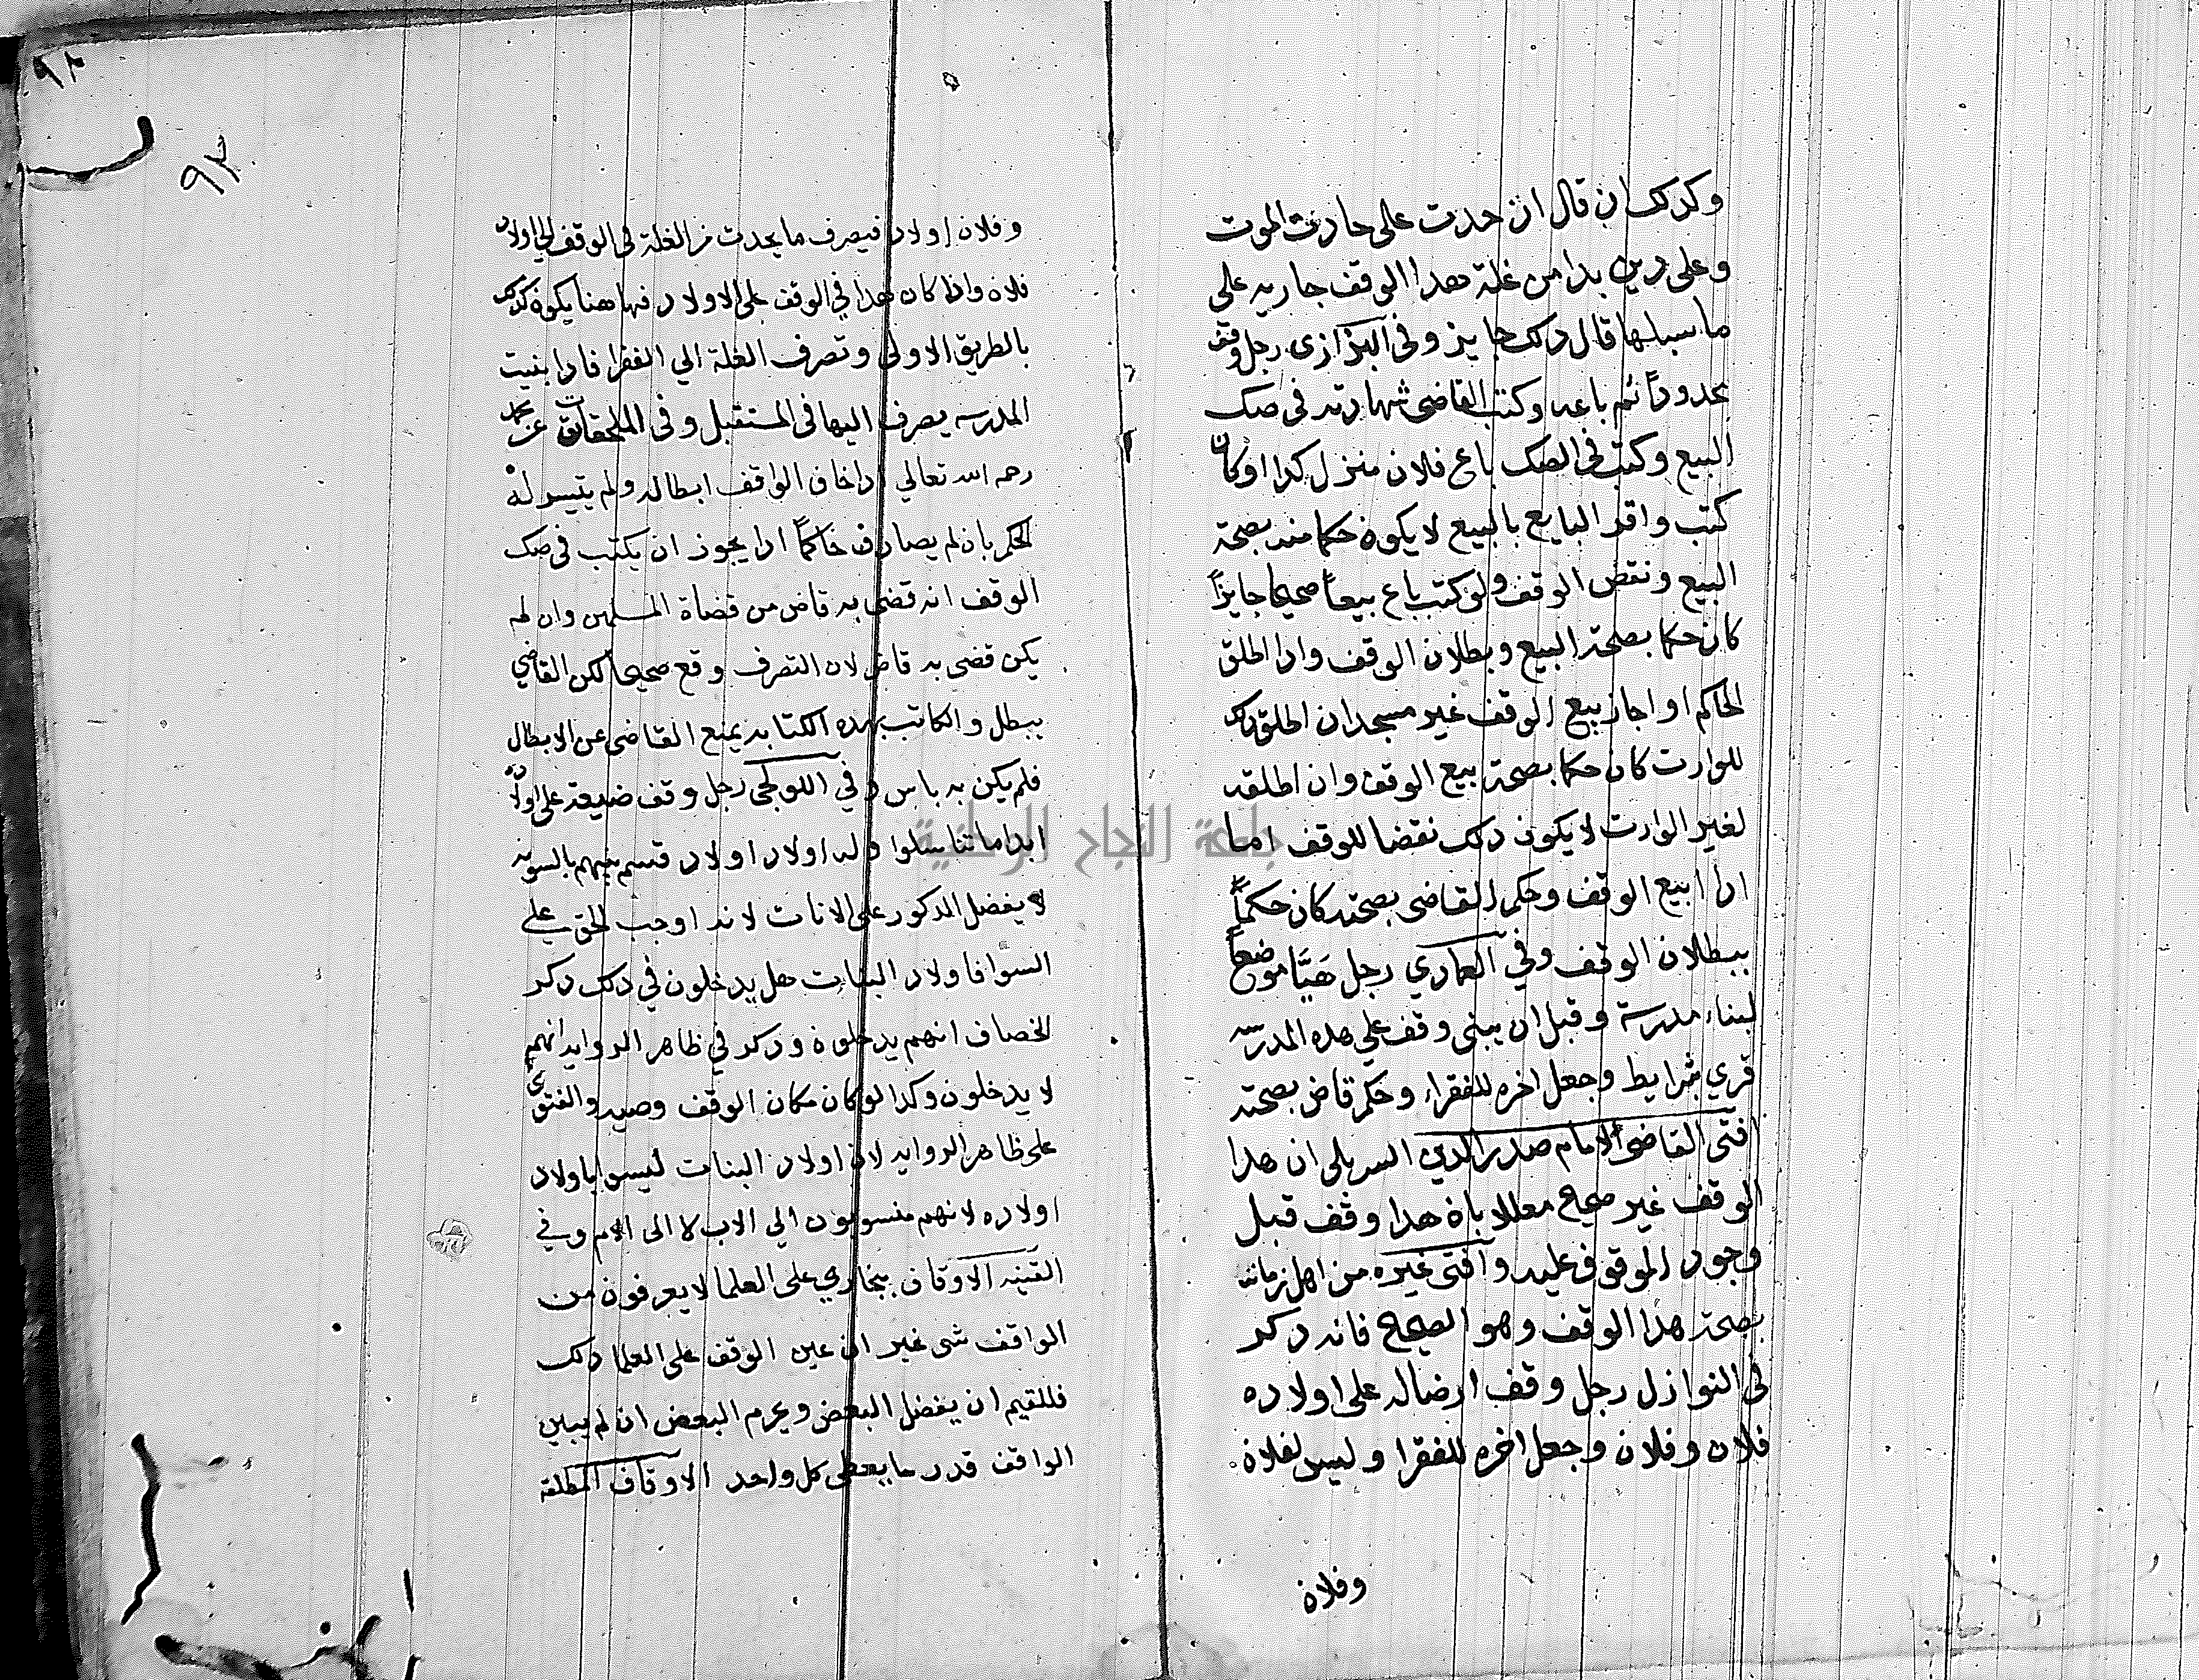 وكدلك ان قال ان حدث على حادث الموت
وعلى دين بدا من غلة هدا الوقف جاريه على
ما سبلها قال دلك جايز وفي البزازي رجل وقف
محدودا ثم باعه وكتب القاضي شهادته في صك
البيع وكتب في الصك باع فلان منزل كدا او كان
كتب واقر البايع بالبيع لا يكون حكما منه بصحة
البيع ونقض الوقف ولو كتب باع بيعاً صحيحا جايزاً
كان حكما بصحة البيع وبطلان الوقف وادا اطلق
الحاكم او اجاز بيع الوقف غير مسجد ان اطلق دلك
للوارت كان حكما بصحة بيع الوقف وان اطلقه
لغير الوارت لا يكون دلك نقضا للوقف اما
ادا ابيع الوقف وحكم القاضي بصحته كان حكماً
ببطلان الوقف وفي العمادي رجل هيّا موضعاً
لبناء مدرسة وقبل ان يبنى وقف على هده المدرسه
قري بشرايط وجعل اخره للفقراء وحكم قاض بصحته
افتى القاضي الامام صدر الدين ان هدا
الوقف غير صحيح معللا بان هدا وقف قبل
وجود الموقوف عليه وافتى غيره من اهل زمانه
بصحة هدا الوقف وهو الصحيح فانه دكر
في النوازل رجل وقف ارضا له على اولاده
فلان وفلان وجعل اخره للفقرا وليس لفلان
وفلان
٩٣
٩٣
وفلان اولاد فيصرف ما يحدث من الغلة في الوقف الى اولاد
فلان وادا كان هدا في الوقف على الاولاد فها هنا يكون كدلك
بالطريق الاولى وتصرف الغلة الي الفقرا فادا بنيت
المدرسه يصرف اليها في المستقبل وفي الملحقات عن محمد
رحمه الله تعالي ادا خاف الواقف ابطاله ولم يتيسر له
الحكم بان لم يصادف حاكماً ادا يجوز ان يكتب في صك
الوقف انه قضى به قاض من قضاة المسلمين وان لم
يكن قضى به قاض لان التصرف وقع صحيحاً لكن القاضي
يبطل والكاتب بهده الكتابه يمنع القاضي عن الابطال
فلم يكن به باس وفي اللولجي رجل وقف ضيعة على اولاده
ابدا ما تناسلوا وله اولاد اولاد قسم بينهم بالسويه
لا يفضل الدكور على الانات لانه اوجب الحق على
السوا فاولاد البنات هل يدخلون في دلك دكر
الخصاف انهم يدخلون ودكر في ظاهر الروايه انهم
لا يدخلون وكدا لو كان مكان الوقف وصيه والفتوى
على ظاهر الروايه لان اولاد البنات ليسوا باولاد
اولاده لانهم منسوبون الي الاب لا الى الام وفي
القنيه الاوقاف ببخاري على العلما لا يعرفون من
الواقف شى غير ان عين الوقف على العلما دلك
فللقيم ان يفضل البعض ويحرم البعض ان لم يبين
الواقف قدر ما يعطى كل واحد الاوقاف المطلقه
جامعة النجاح الوطنية